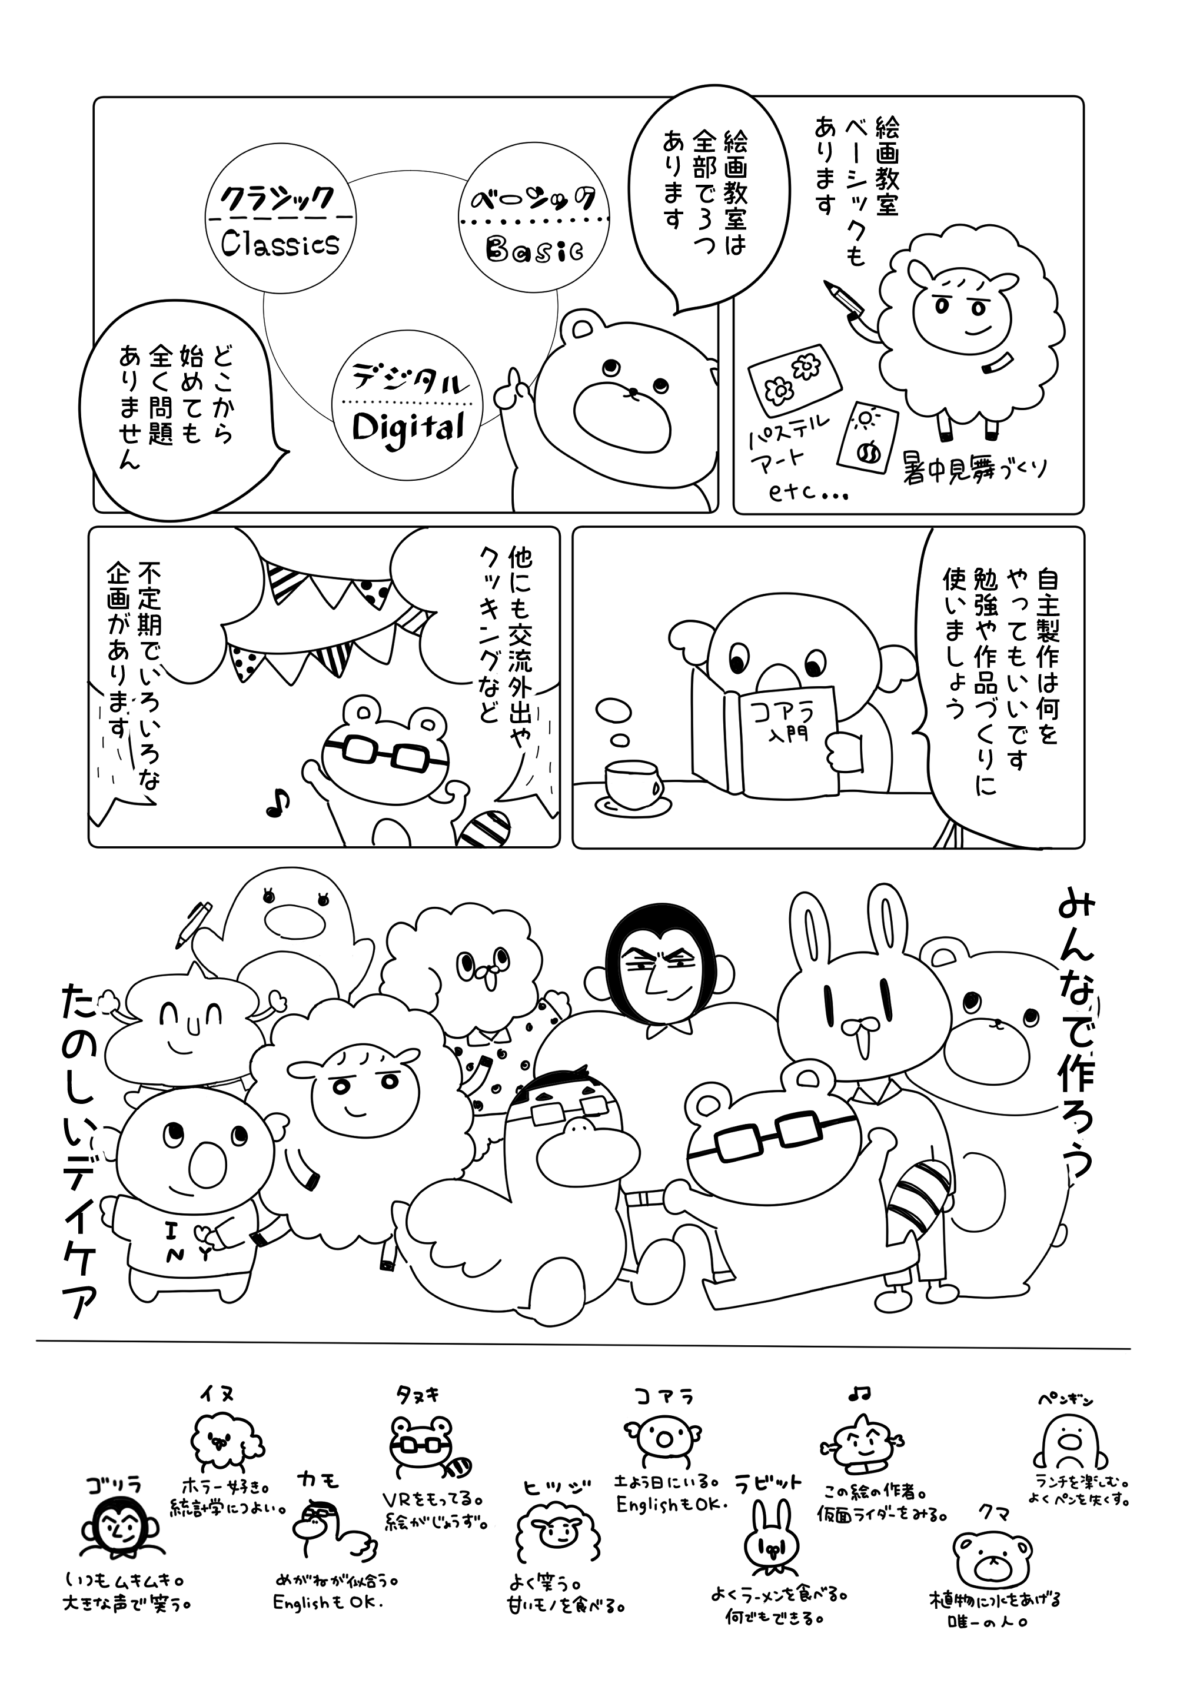 絵画教室
ベーシックも
あります
パステル
アート
etc...
暑中見舞づくり
絵画教室は
全部で3つ
あります
クラシック
Classics
ベーシック
Basic
デジタル
Digital
どこから
始めても
全く問題
ありません
自主製作は何を
やってもいいです
勉強や作品づくりに
使いましょう
コアラ
入門
他にも交流外出や
クッキングなど
不定期でいろいろな
企画があります
みんなで作ろう
たのしいデイケア
I
N Y
ゴリラ
いつもムキムキ。
大きな声で笑う。
イヌ
ホラー好き。
統計学につよい。
カモ
めがねが似合う。
EnglishもOK.
タヌキ
VRをもってる。
絵がじょうず。
ヒツジ
よく笑う。
甘いモノを食べる。
コアラ
土よう日にいる。
EnglishもOK.
ラビット
よくラーメンを食べる。
何でもできる。
♫
この絵の作者。
仮面ライダーをみる。
クマ
植物に水をあげる
唯一の人。
ペンギン
ランチを楽しむ。
よくペンを失くす。